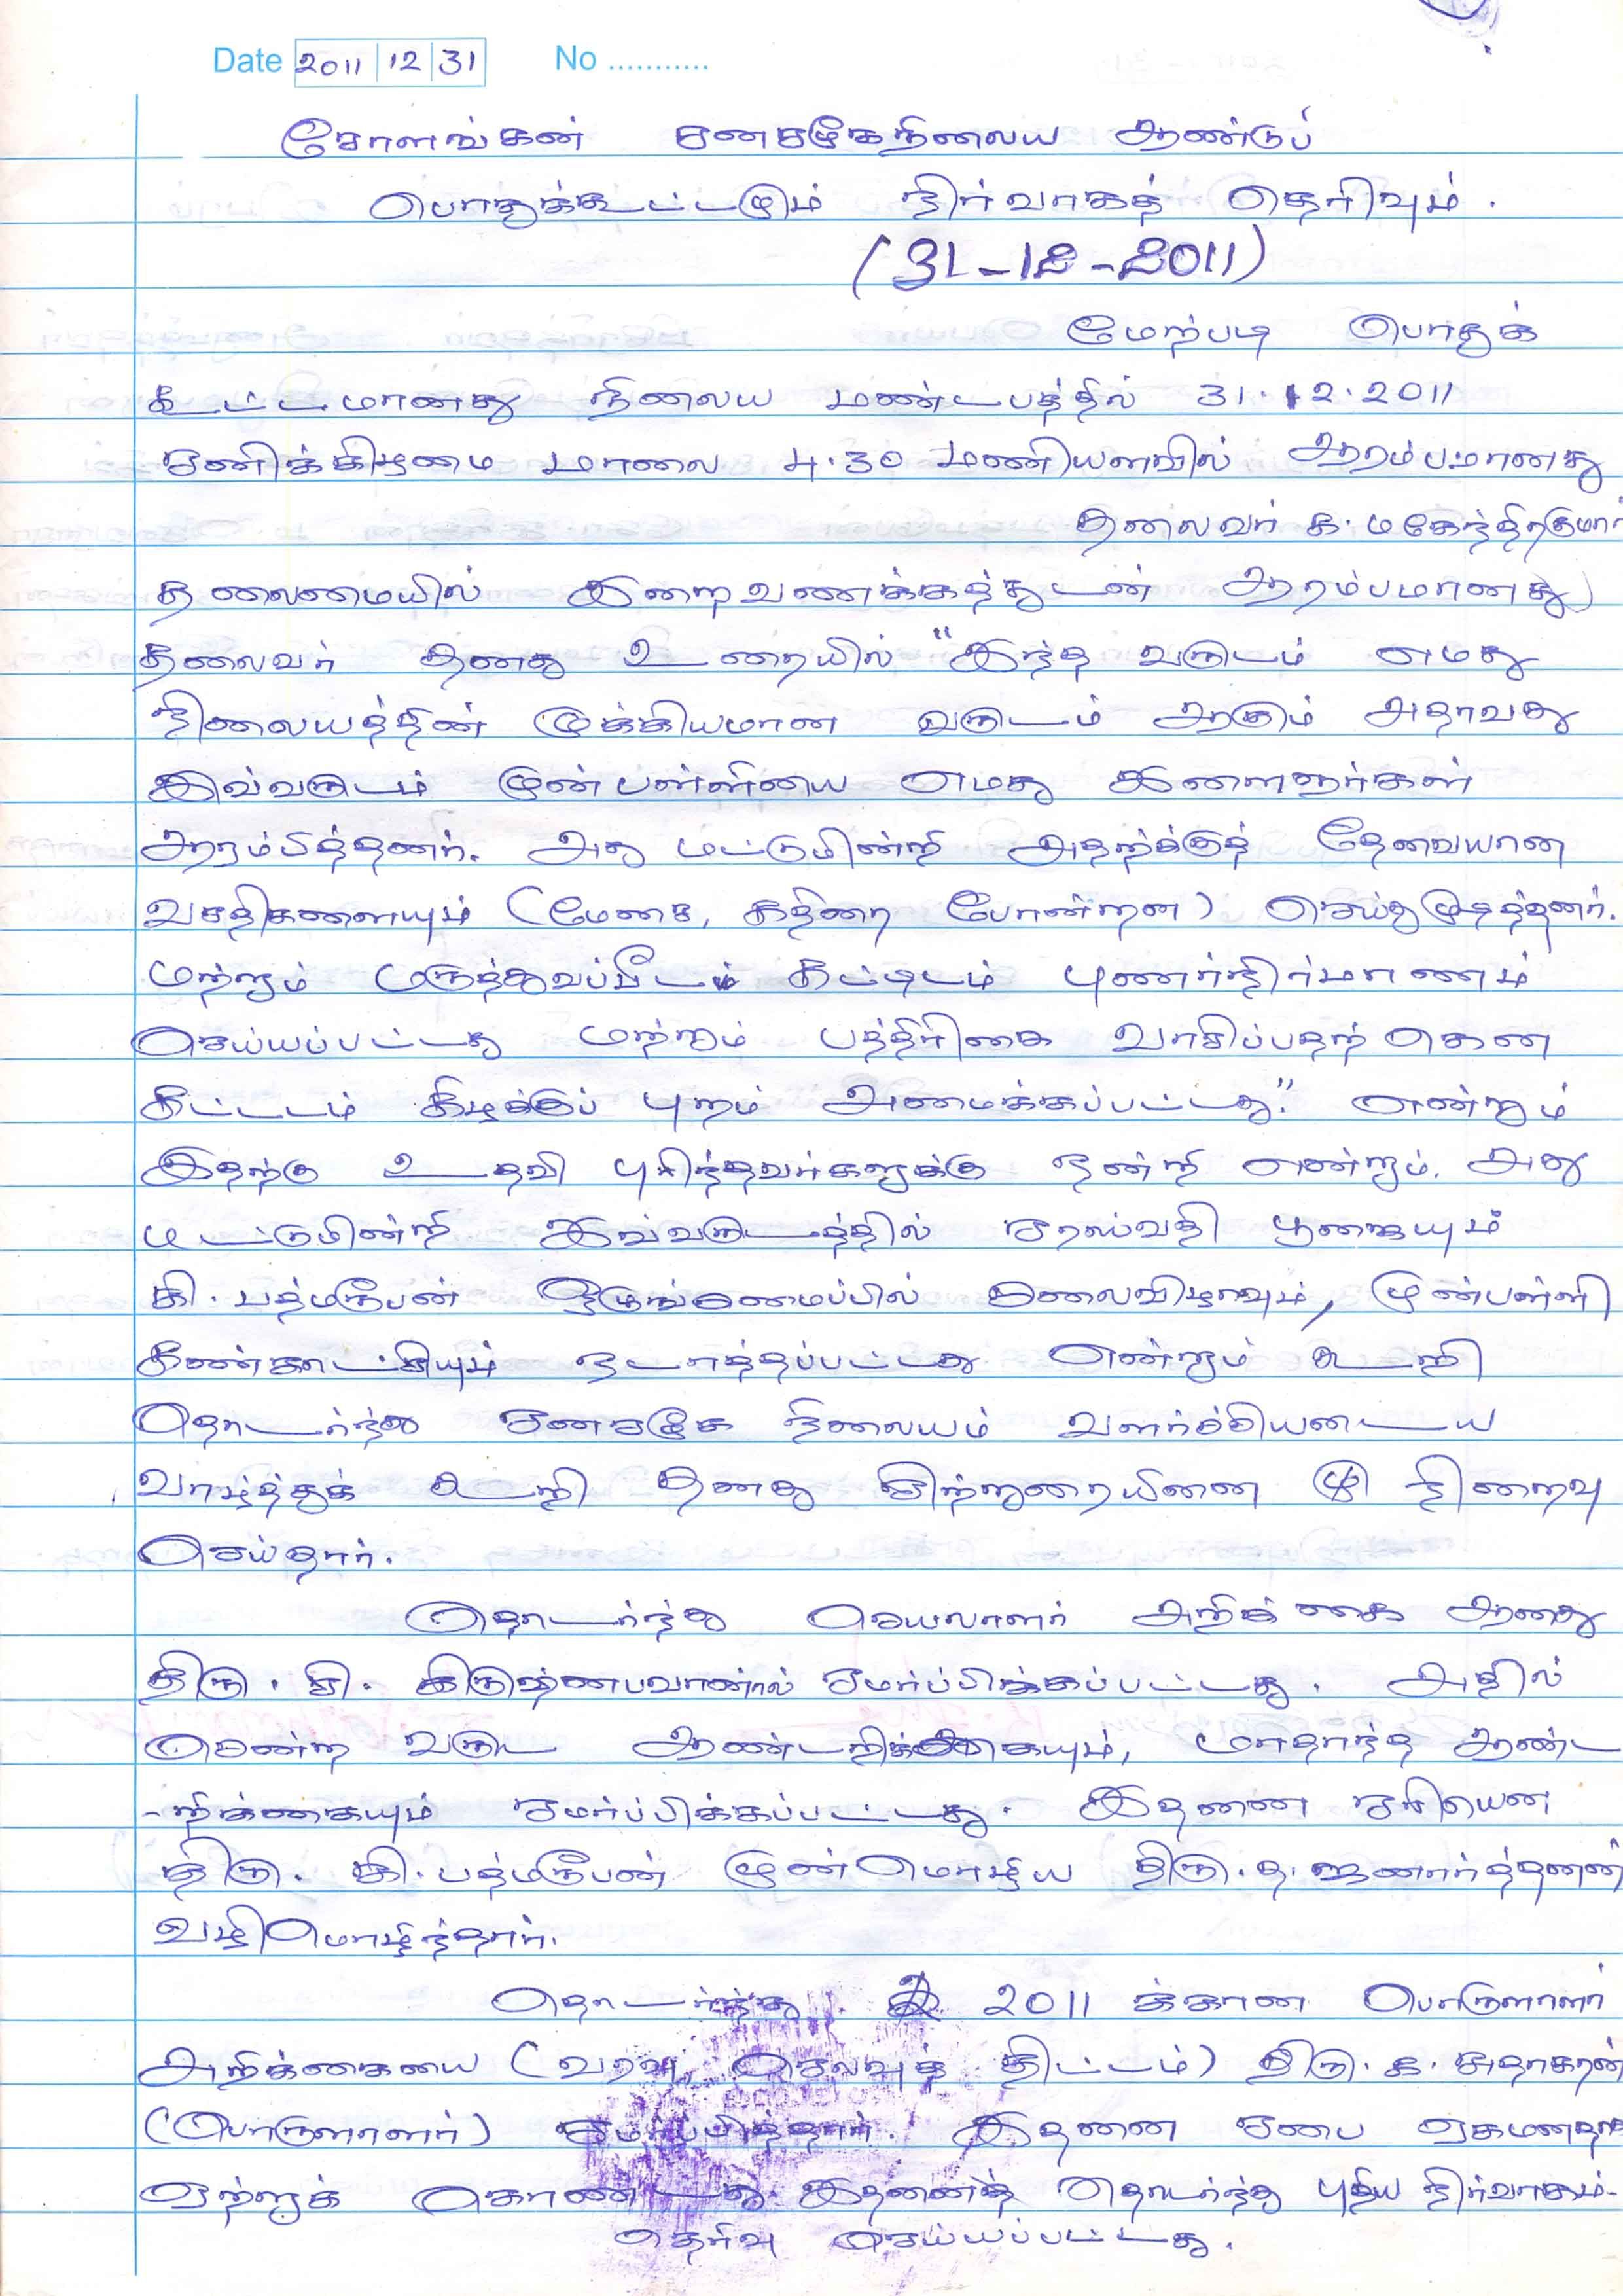 Date 2011 | 12 | 31 No ...........
சோளங்கன் சனசமூகநிலைய ஆண்டுப்
பொதுக்கூட்டமும் நிர்வாகத் தெரிவும்.
(31-12-2011)
மேற்படி பொதுக்
கூட்டமானது நிலைய மண்டபத்தில் 31.12.2011
சனிக்கிழமை மாலை 4.30 மணியளவில் ஆரம்பமானது
தலைவர் க. மகேந்திரகுமார்
தலைமையில் இறைவணக்கத்துடன் ஆரம்பமானது
தலைவர் தனது உரையில் "இந்த வருடம் எமது
நிலையத்தின் முக்கியமான வருடம் ஆகும் அதாவது
இவ்வருடம் முன்பள்ளியை எமது இளைஞர்கள்
ஆரம்பித்தனர். அது மட்டுமின்றி அதற்க்குத் தேவையான
வசதிகளையும் (மேசை, கதிரை போன்றன) செய்து முடித்தனர்.
மற்றும் மருந்துவப்பீடம் கட்டிடம் புணர்நிர்மாணம்
செய்யப்பட்டது மற்றும் பத்திரிகை வாசிப்பதற் கென
கட்டடம் கிழக்குப் புறம் அமைக்கப்பட்டது." என்றும்
இதற்கு உதவி புரிந்தவர்களுக்கு நன்றி என்றும். அது
மட்டுமின்றி இவ்வருடத்தில் சரஸ்வதி பூசையும்
கி. பத்மரூபன் ஒழுங்கமைப்பில் கலைவிழாவும், முன்பள்ளி
கண்காட்சியும் நடாத்தப்பட்டது என்றும் கூறி
தொடர்ந்து சனசமூக நிலையம் வளர்ச்சியடைய
வாழ்த்துக் கூறி தனது சிற்றுரையினை நிறைவு
செய்தார்.
தொடர்ந்து செயலாளர் அறிக்கை ஆனது
திரு. சி. கிருஷ்ணபவானால் சமர்ப்பிக்கப்பட்டது. அதில்
சென்ற வருட ஆண்டறிக்கையும், மாதாந்த ஆண்ட
-றிக்கையும் சமர்ப்பிக்கப்பட்டது. இதனை சரியென
திரு. கி. பத்மரூபன் முன்மொழிய திரு. த. ஜனார்த்தனன்
வழிமொழிந்தார்.
தொடர்ந்து 2011 க்கான பொருளாளர்
அறிக்கையை (வரவு செலவுத் திட்டம்) திரு. க. சுதாகரன்
(பொருளாளர்) சமர்ப்பித்தார். இதனை சபை ஏகமனதாக
ஏற்றுக் கொண்டது. இதனைத் தொடர்ந்து புதிய நிர்வாகம்
தெரிவு செய்யப்பட்டது.